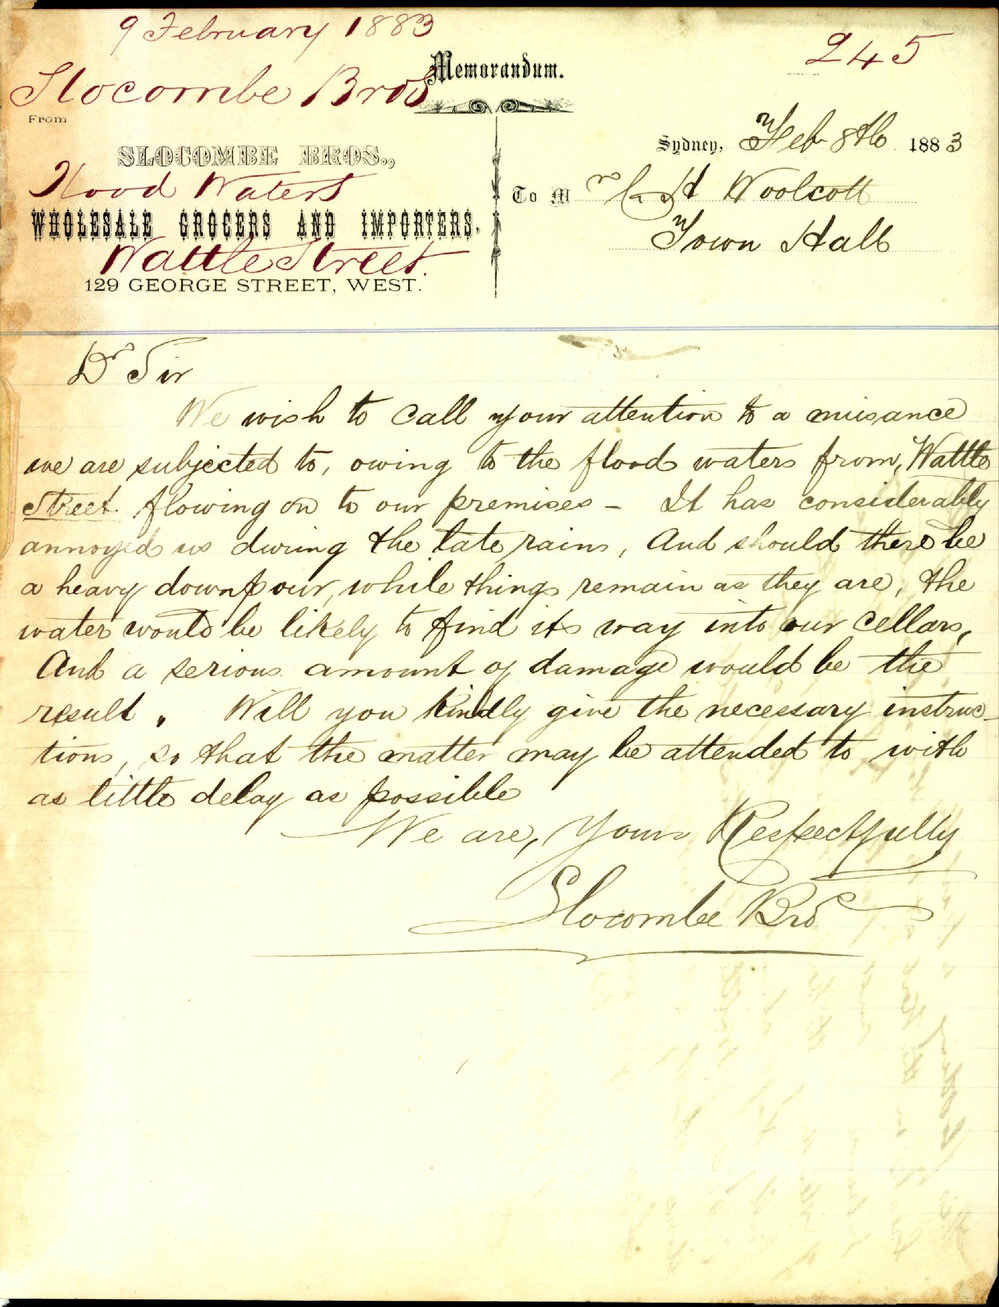 9 February 1883
245
Slocombe Bros
Memorandum.
From
Sydney, Feb 8th 1883
SLOCOMBE BROS.,
Flood Waters
To Mr C H Woolcott
WHOLESALE GROCERS AND IMPORTERS,
Town Hall
Wattle Street.
129 GEORGE STREET, WEST.
Dr Sir
We wish to call your attention to a nuisance
we are subjected to, owing to the flood waters from, Wattle
Street. flowing on to our premises – It has considerably
annoyed us during the late rains, And should there be
a heavy downpour, while things remain as they are, the
water would be likely to find its way into our cellars,
And a serious amount of damage would be the
result, Will you kindly give the necessary instruc-
tions, so that the matter may be attended to with
as little delay as possible
We are, Yours Respectfully
Slocombe Bros